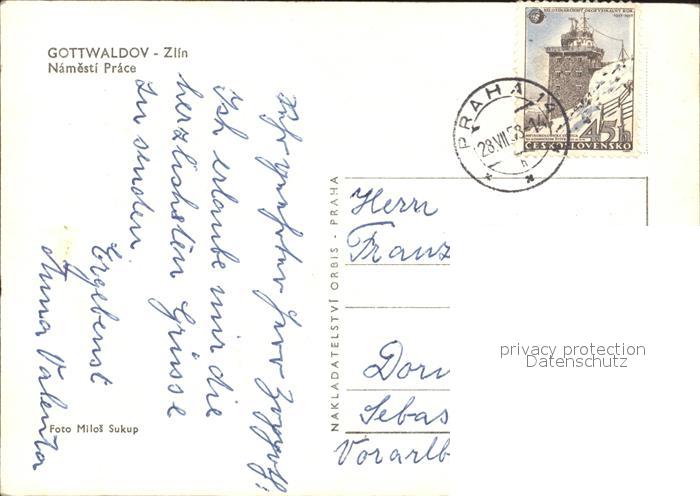 GOTTWALDOV - Zlín
Náměstí Práce
Sehr geehrter Herr
Ich erlaube mir die
herzlichsten Grüsse
zu senden.
Ergebenst
Anna Valenta
Foto Miloš Sukup
NAKLADATELSTVÍ ORBIS - PRAHA
PRAHA 14
28.VII.58
1957-1958
45h
ČESKOSLOVENSKO
Herrn
Franz
Dorn
Sebas
Vorarlb
privacy protection
Datenschutz